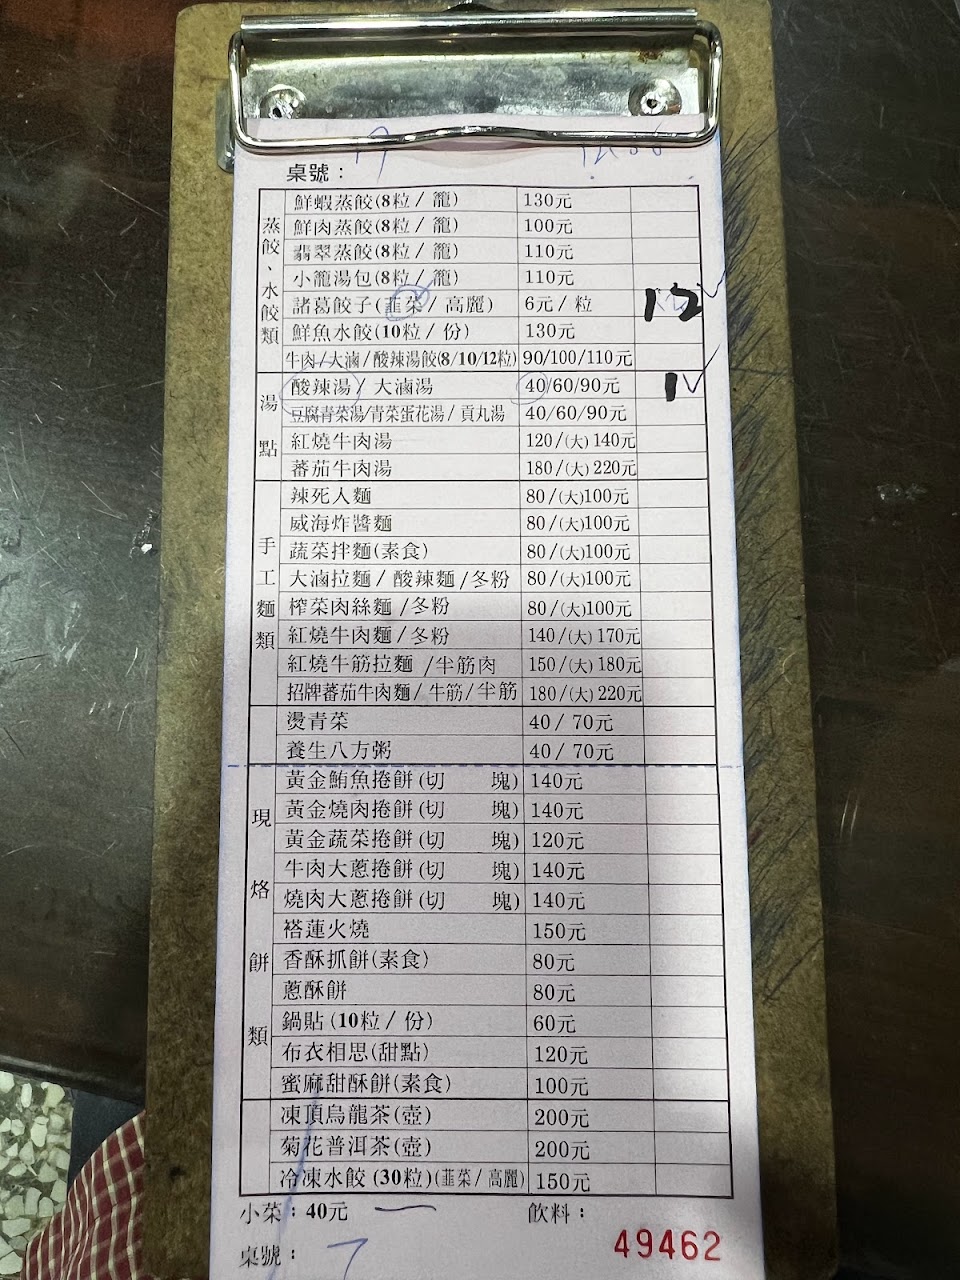 桌號：
蒸餃、水餃類
鮮蝦蒸餃(8粒/籠) 130元
鮮肉蒸餃(8粒/籠) 100元
翡翠蒸餃(8粒/籠) 110元
小籠湯包(8粒/籠) 110元
諸葛餃子(韭菜/高麗) 6元/粒 12
鮮魚水餃(10粒/份) 130元
牛肉/大滷/酸辣湯餃(8/10/12粒) 90/100/110元
湯點
酸辣湯/大滷湯 40/60/90元 1
豆腐青菜湯/青菜蛋花湯/貢丸湯 40/60/90元
紅燒牛肉湯 120/(大)140元
蕃茄牛肉湯 180/(大)220元
手工麵類
辣死人麵 80/(大)100元
威海炸醬麵 80/(大)100元
蔬菜拌麵(素食) 80/(大)100元
大滷拉麵/酸辣麵/冬粉 80/(大)100元
榨菜肉絲麵/冬粉 80/(大)100元
紅燒牛肉麵/冬粉 140/(大)170元
紅燒牛筋拉麵/半筋肉 150/(大)180元
招牌蕃茄牛肉麵/牛筋/半筋 180/(大)220元
燙青菜 40/70元
養生八方粥 40/70元
現烙餅類
黃金鮪魚捲餅(切 塊) 140元
黃金燒肉捲餅(切 塊) 140元
黃金蔬菜捲餅(切 塊) 120元
牛肉大蔥捲餅(切 塊) 140元
燒肉大蔥捲餅(切 塊) 140元
褡蓮火燒 150元
香酥抓餅(素食) 80元
蔥酥餅 80元
鍋貼(10粒/份) 60元
布衣相思(甜點) 120元
蜜麻甜酥餅(素食) 100元
凍頂烏龍茶(壺) 200元
菊花普洱茶(壺) 200元
冷凍水餃(30粒)(韭菜/高麗) 150元
小菜：40元 飲料：
桌號： 7
49462